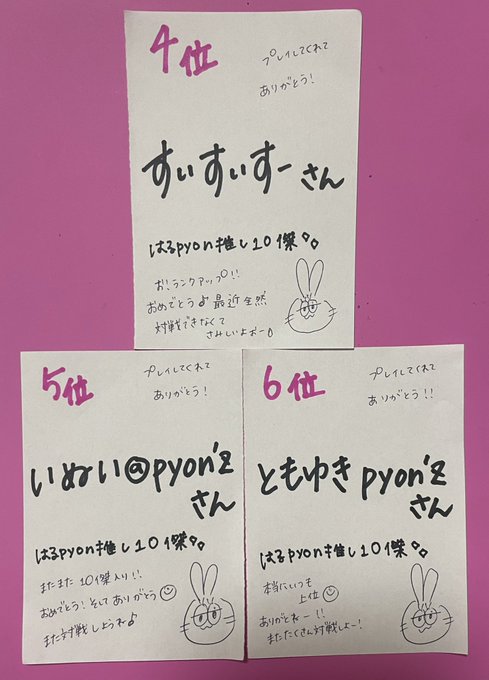 4位
プレイしてくれて
ありがとう!
すぃすぃすーさん
はるpyon推し10傑
お!ランクアップ!!
おめでとう♪最近全然
対戦できなくて
さみしいよおー
5位
プレイしてくれて
ありがとう!
いぬい@pyon'z
さん
はるpyon推し10傑
またまた10傑入り!!
おめでとう!そしてありがとう
また対戦しようね♪
6位
プレイしてくれて
ありがとう!!
ともゆきpyon'z
さん
はるpyon推し10傑
本当にいつも
上位
ありがとねー!!
またたくさん対戦しよー!